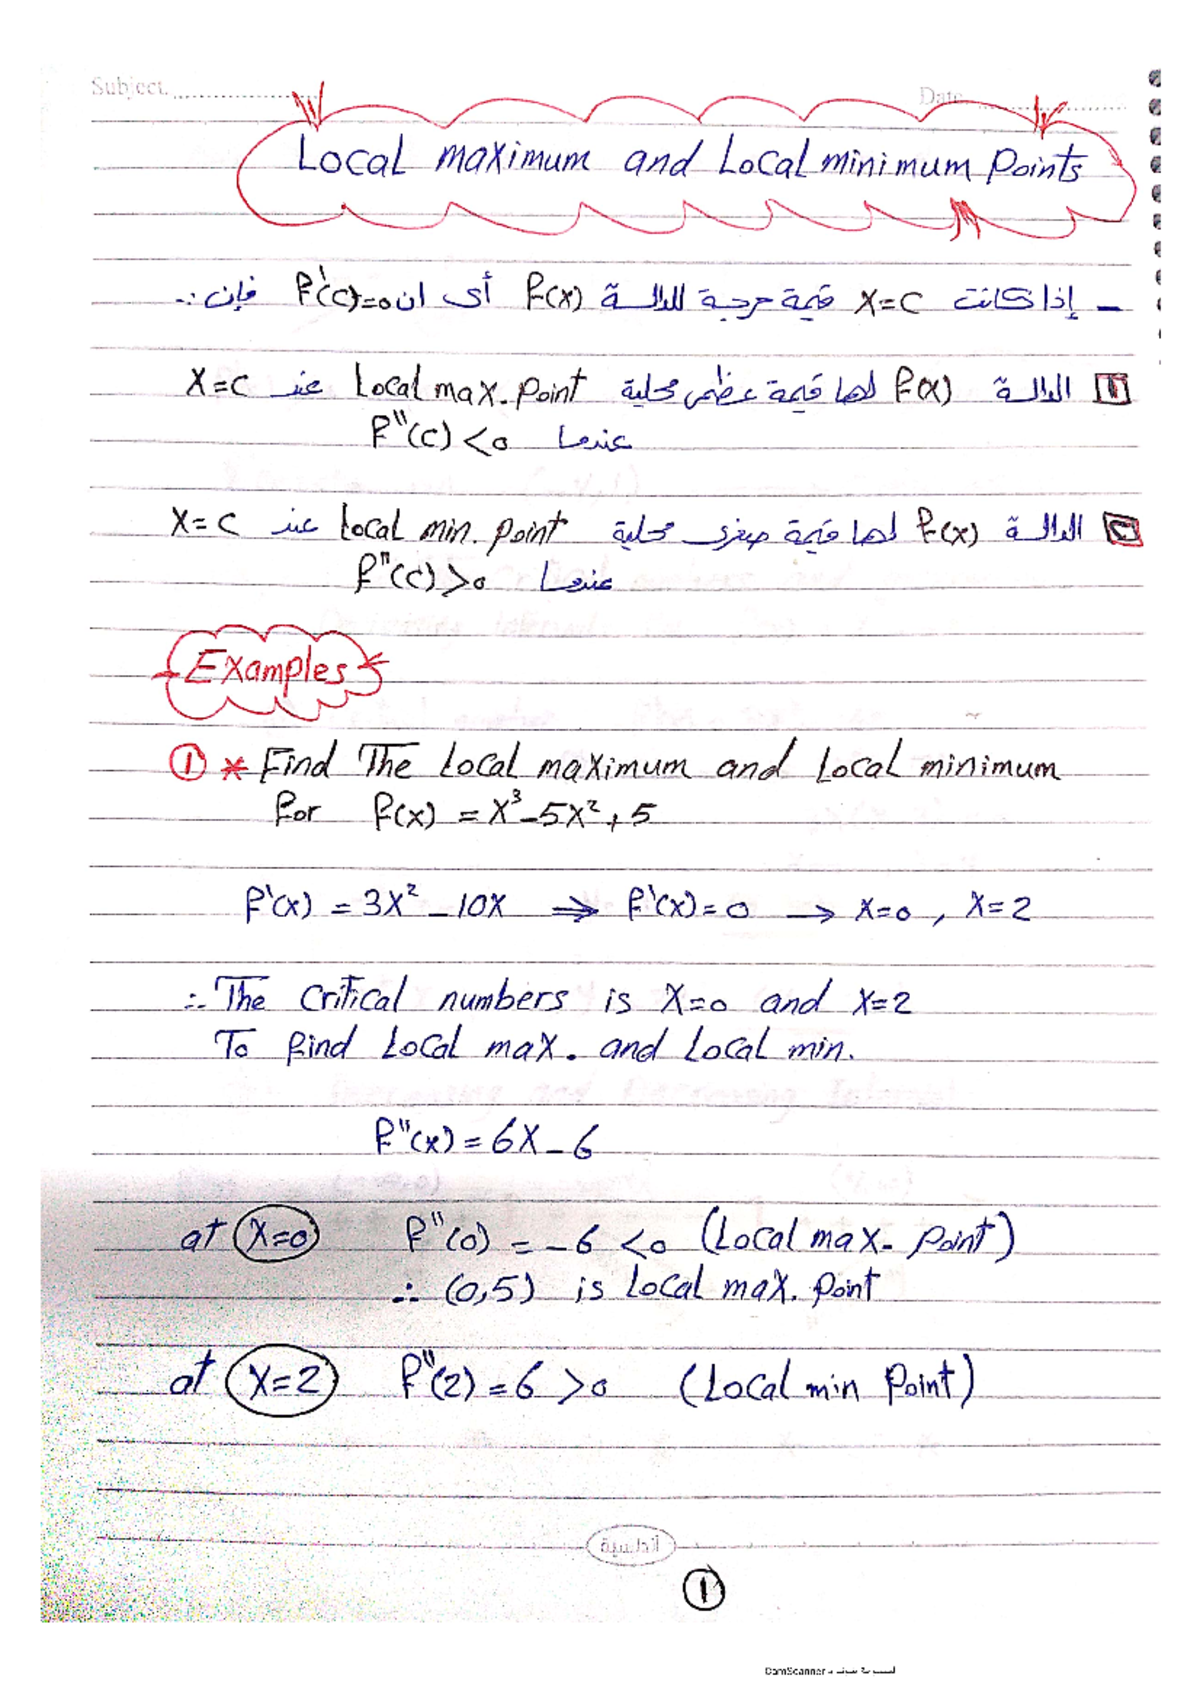 Subject.
Date
Local maximum and Local minimum Points
– إذا كانت x=c قيمة حرجة للدالة f(x) أى ان f'(c)=0 فإن :-
1 الدالة f(x) لها قيمة عظمى محلية Local max. Point عند x=c
عندما f''(c) <0
2 الدالة f(x) لها قيمة صغرى محلية Local min. point عند x=c
عندما f''(c) >0
Examples
① * Find The Local maximum and Local minimum
for f(x) = x³-5x²+5
f'(x) = 3x²-10x ⇒ f'(x)=0 → x=0 , x=2
∴ The Critical numbers is x=0 and x=2
To find Local max. and Local min.
f''(x) = 6x-6
at x=0 f''(0) = -6 <0 (Local max. Point)
∴ (0,5) is Local max. Point
at x=2 f''(2) = 6 >0 (Local min Point)
①
CamScanner